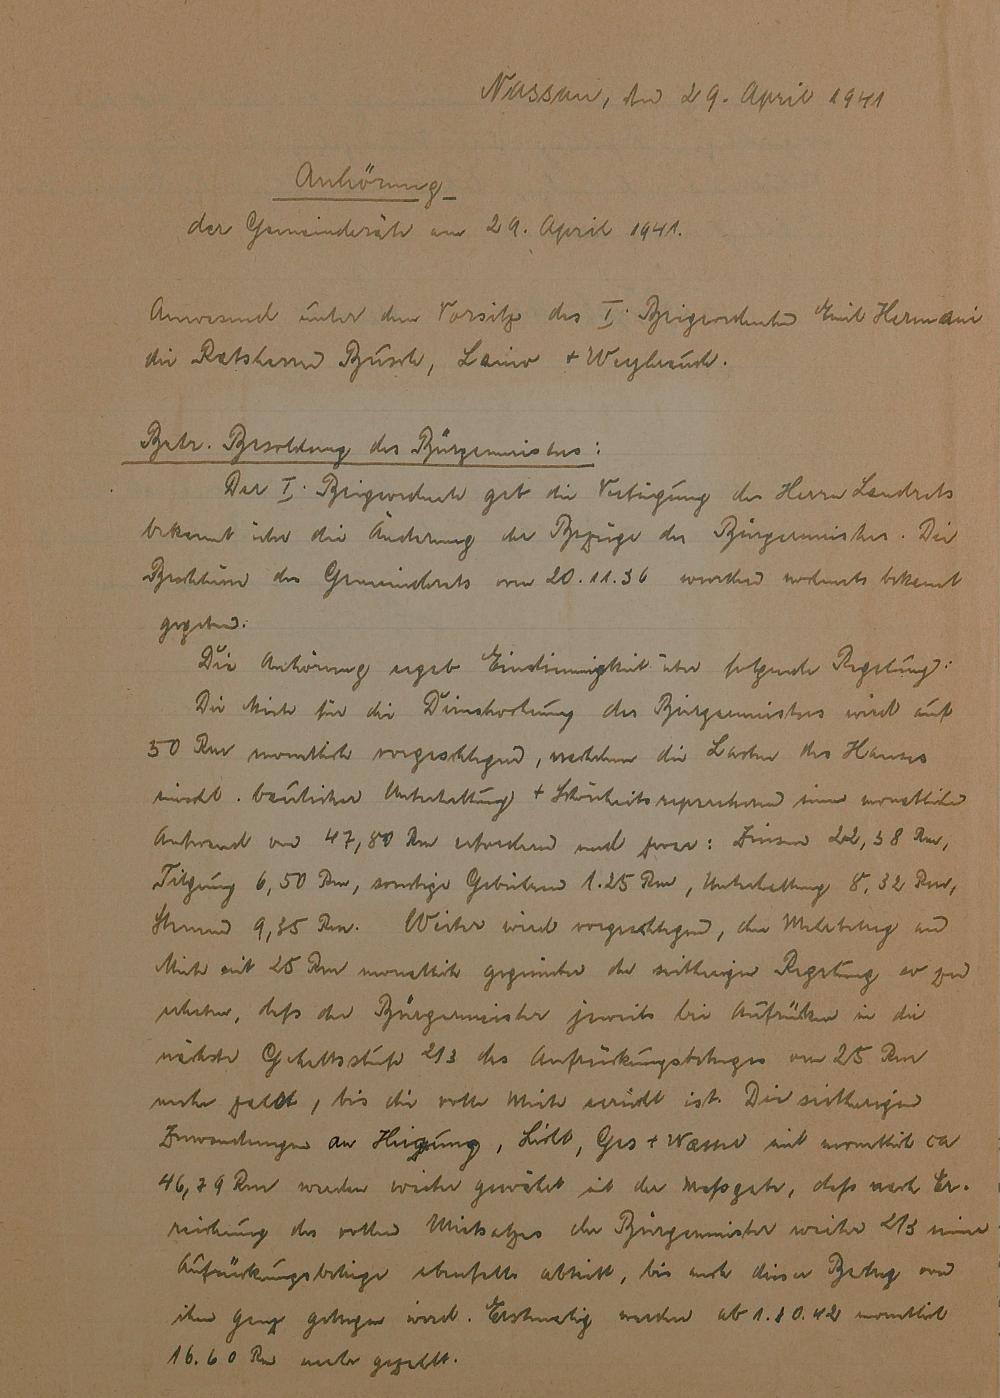 Nassau, den 29. April 1941
Anhörung
der Gemeinderäte am 29. April 1941.
Anwesend unter dem Vorsitz des I. Beigeordneten Emil Hermani
die Ratsherrn Busch, +
Betr. Besoldung des Bürgermeisters:
Der I. Beigeordnete gab die Verfügung des Herrn Landrats
bekannt über die Änderung der Bezüge des Bürgermeisters. Die
Beschlüsse des Gemeinderats vom 20.11.36 wurden nochmals bekannt
gegeben.
Die Anhörung ergab Einstimmigkeit über folgende Regelung:
Die Miete für die Dienstwohnung des Bürgermeisters wird auf
50 Rm monatlich vorgeschlagen, nachdem die Lasten des Hauses
einschl. baulicher Unterhaltung + Schönheitsreparaturen einen monatlichen
Aufwand von 47,80 Rm erfordern und zwar: Zinsen 22,38 Rm,
Tilgung 6,50 Rm, sonstige Gebühren 1.25 Rm, Unterhaltung 8,32 Rm,
Steuern 9,35 Rm. Weiter wird vorgeschlagen, den Mehrbetrag an
Miete mit 25 Rm monatlich gegenüber der seitherigen Regelung so zu
erheben, daß der Bürgermeister jeweils bei Aufrücken in die
nächste Gehaltsstufe 2/3 des Aufrückungsbetrages von 25 Rm
mehr zahlt, bis die volle Miete erreicht ist. Die seitherigen
Zuwendungen an Heizung, Licht, Gas + Wasser mit monatlich ca
46,79 Rm werden weiter gewährt mit der Maßgabe, daß nach Er-
reichung des vollen Mietsatzes der Bürgermeister weiter 2/3 seiner
Aufrückungsbeträge ebenfalls abtritt, bis auch dieser Betrag von
ihm ganz getragen wird. Erstmalig werden ab 1.10.42 monatlich
16.60 Rm mehr gezahlt.